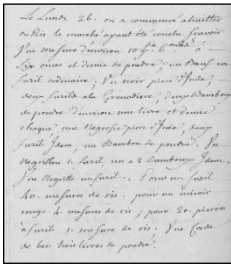 Le Lundi 26. on a commencé a traitter
ou Ris le marché ayant été conclu sçavoir
J'un mesure d'environ 10 à
six onces et demie de poudre; un Bœuf un
fusil ordinaire; J'un noir piece d'Inde,
deux fusils a la Grenadiere, deux Barbons
de poudre d'environ une livre et demie
chaque; une Negresse piece d'Inde, deux
fusil Idem, un Bambou de poudre. Un
Negrillon 1. fusil, un a 2 Bambous Idem.
Une Negritte un fusil. Pour un fusil
40. mesures de ris. pour un miroir
rouge 4. mesures de ris; pour 20. pierres
à fusil 1. mesure de ris. Une Corde
de bois trois livres de poudre.